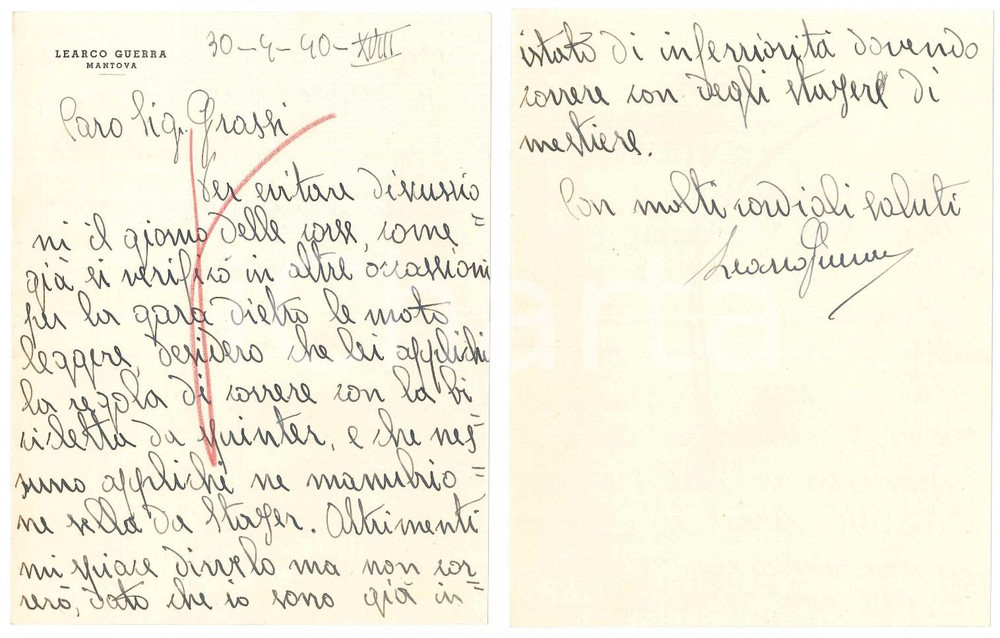 LEARCO GUERRA
MANTOVA
30-4-40-XVIII
Caro Sig. Grassi
Per evitare discussio
ni il giorno delle corse, come =
già si verificò in altre occassioni
per la gara dietro le moto
leggere, desidero che lei applichi
la regola di correre con la bi
cicletta da sprinter, e che nes=
suno applichi ne manubrio =
ne sella da Stayer. Altrimenti
mi spiace dirvelo ma non cor=
rerò, dato che io sono già in=
istato di inferiorità dovendo
correre con degli stayers di
mestiere.
Con molti cordiali saluti
Learco Guerra